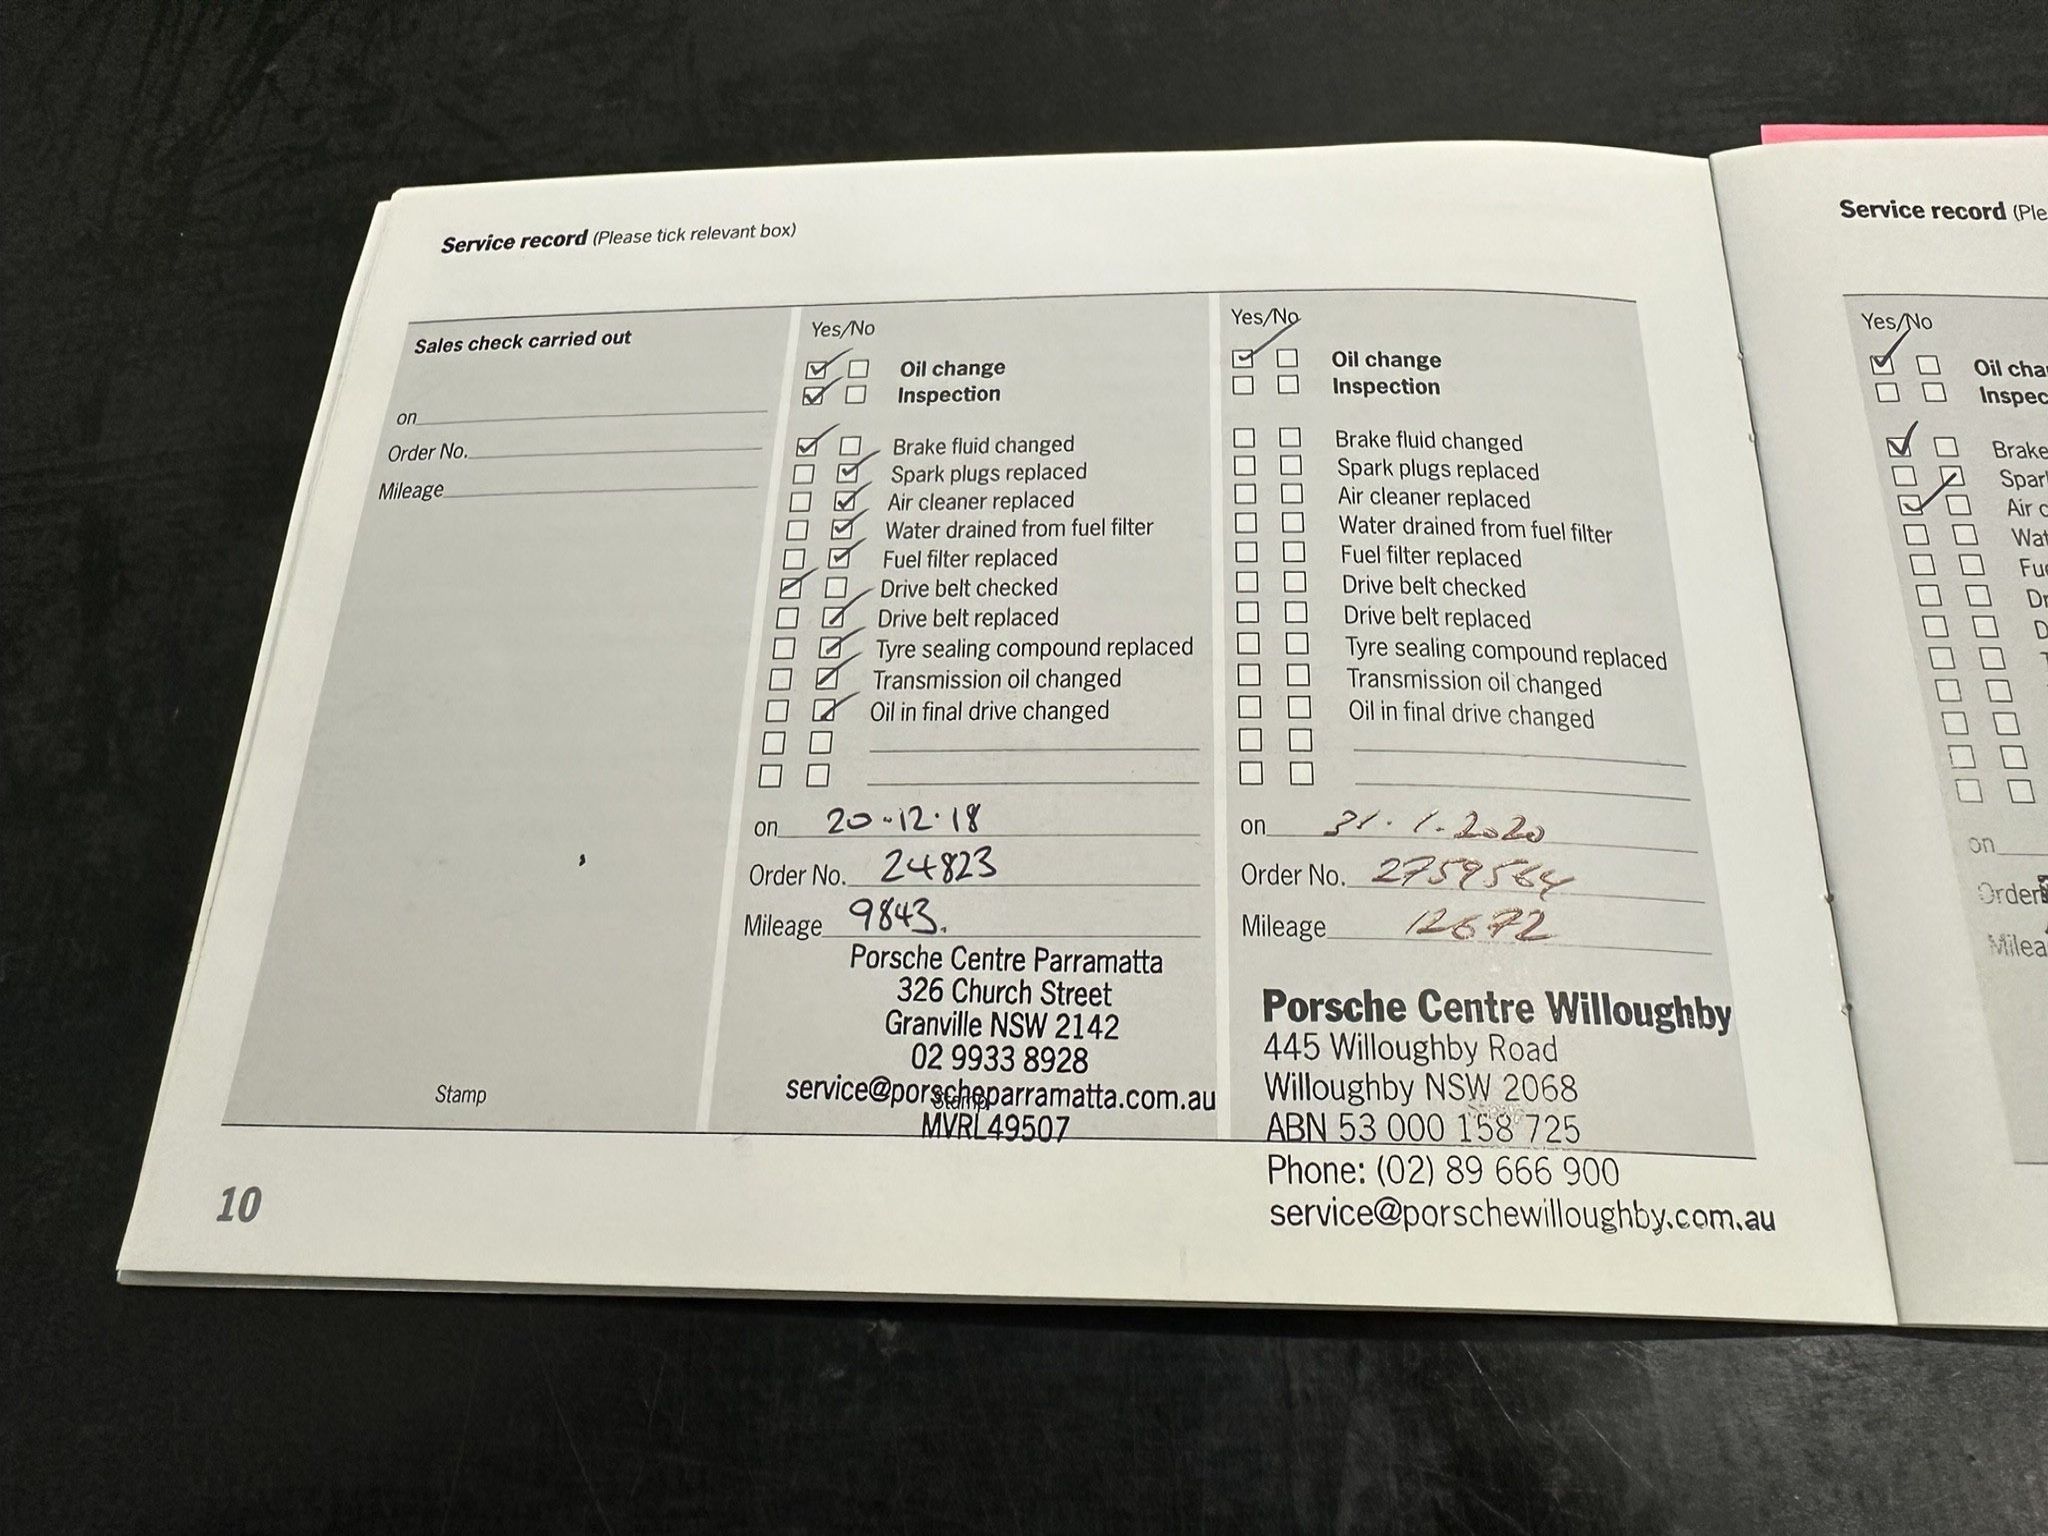 Service record (Please tick relevant box)
Sales check carried out
on
Order No.
Mileage
Stamp
Yes/No
Oil change
Inspection
Brake fluid changed
Spark plugs replaced
Air cleaner replaced
Water drained from fuel filter
Fuel filter replaced
Drive belt checked
Drive belt replaced
Tyre sealing compound replaced
Transmission oil changed
Oil in final drive changed
on 20.12.18
Order No. 24823
Mileage 9843.
Porsche Centre Parramatta
326 Church Street
Granville NSW 2142
02 9933 8928
service@porscheparramatta.com.au
Stamp
MVRL49507
Yes/No
Oil change
Inspection
Brake fluid changed
Spark plugs replaced
Air cleaner replaced
Water drained from fuel filter
Fuel filter replaced
Drive belt checked
Drive belt replaced
Tyre sealing compound replaced
Transmission oil changed
Oil in final drive changed
on 31.1.2020
Order No. 2759564
Mileage 12672
Porsche Centre Willoughby
445 Willoughby Road
Willoughby NSW 2068
ABN 53 000 158 725
Phone: (02) 89 666 900
service@porschewilloughby.com.au
10
Service record (Ple
Yes/No
Oil cha
Inspec
Brake
Spar
Air c
Wat
Fue
Dr
D
on
Order
Milea